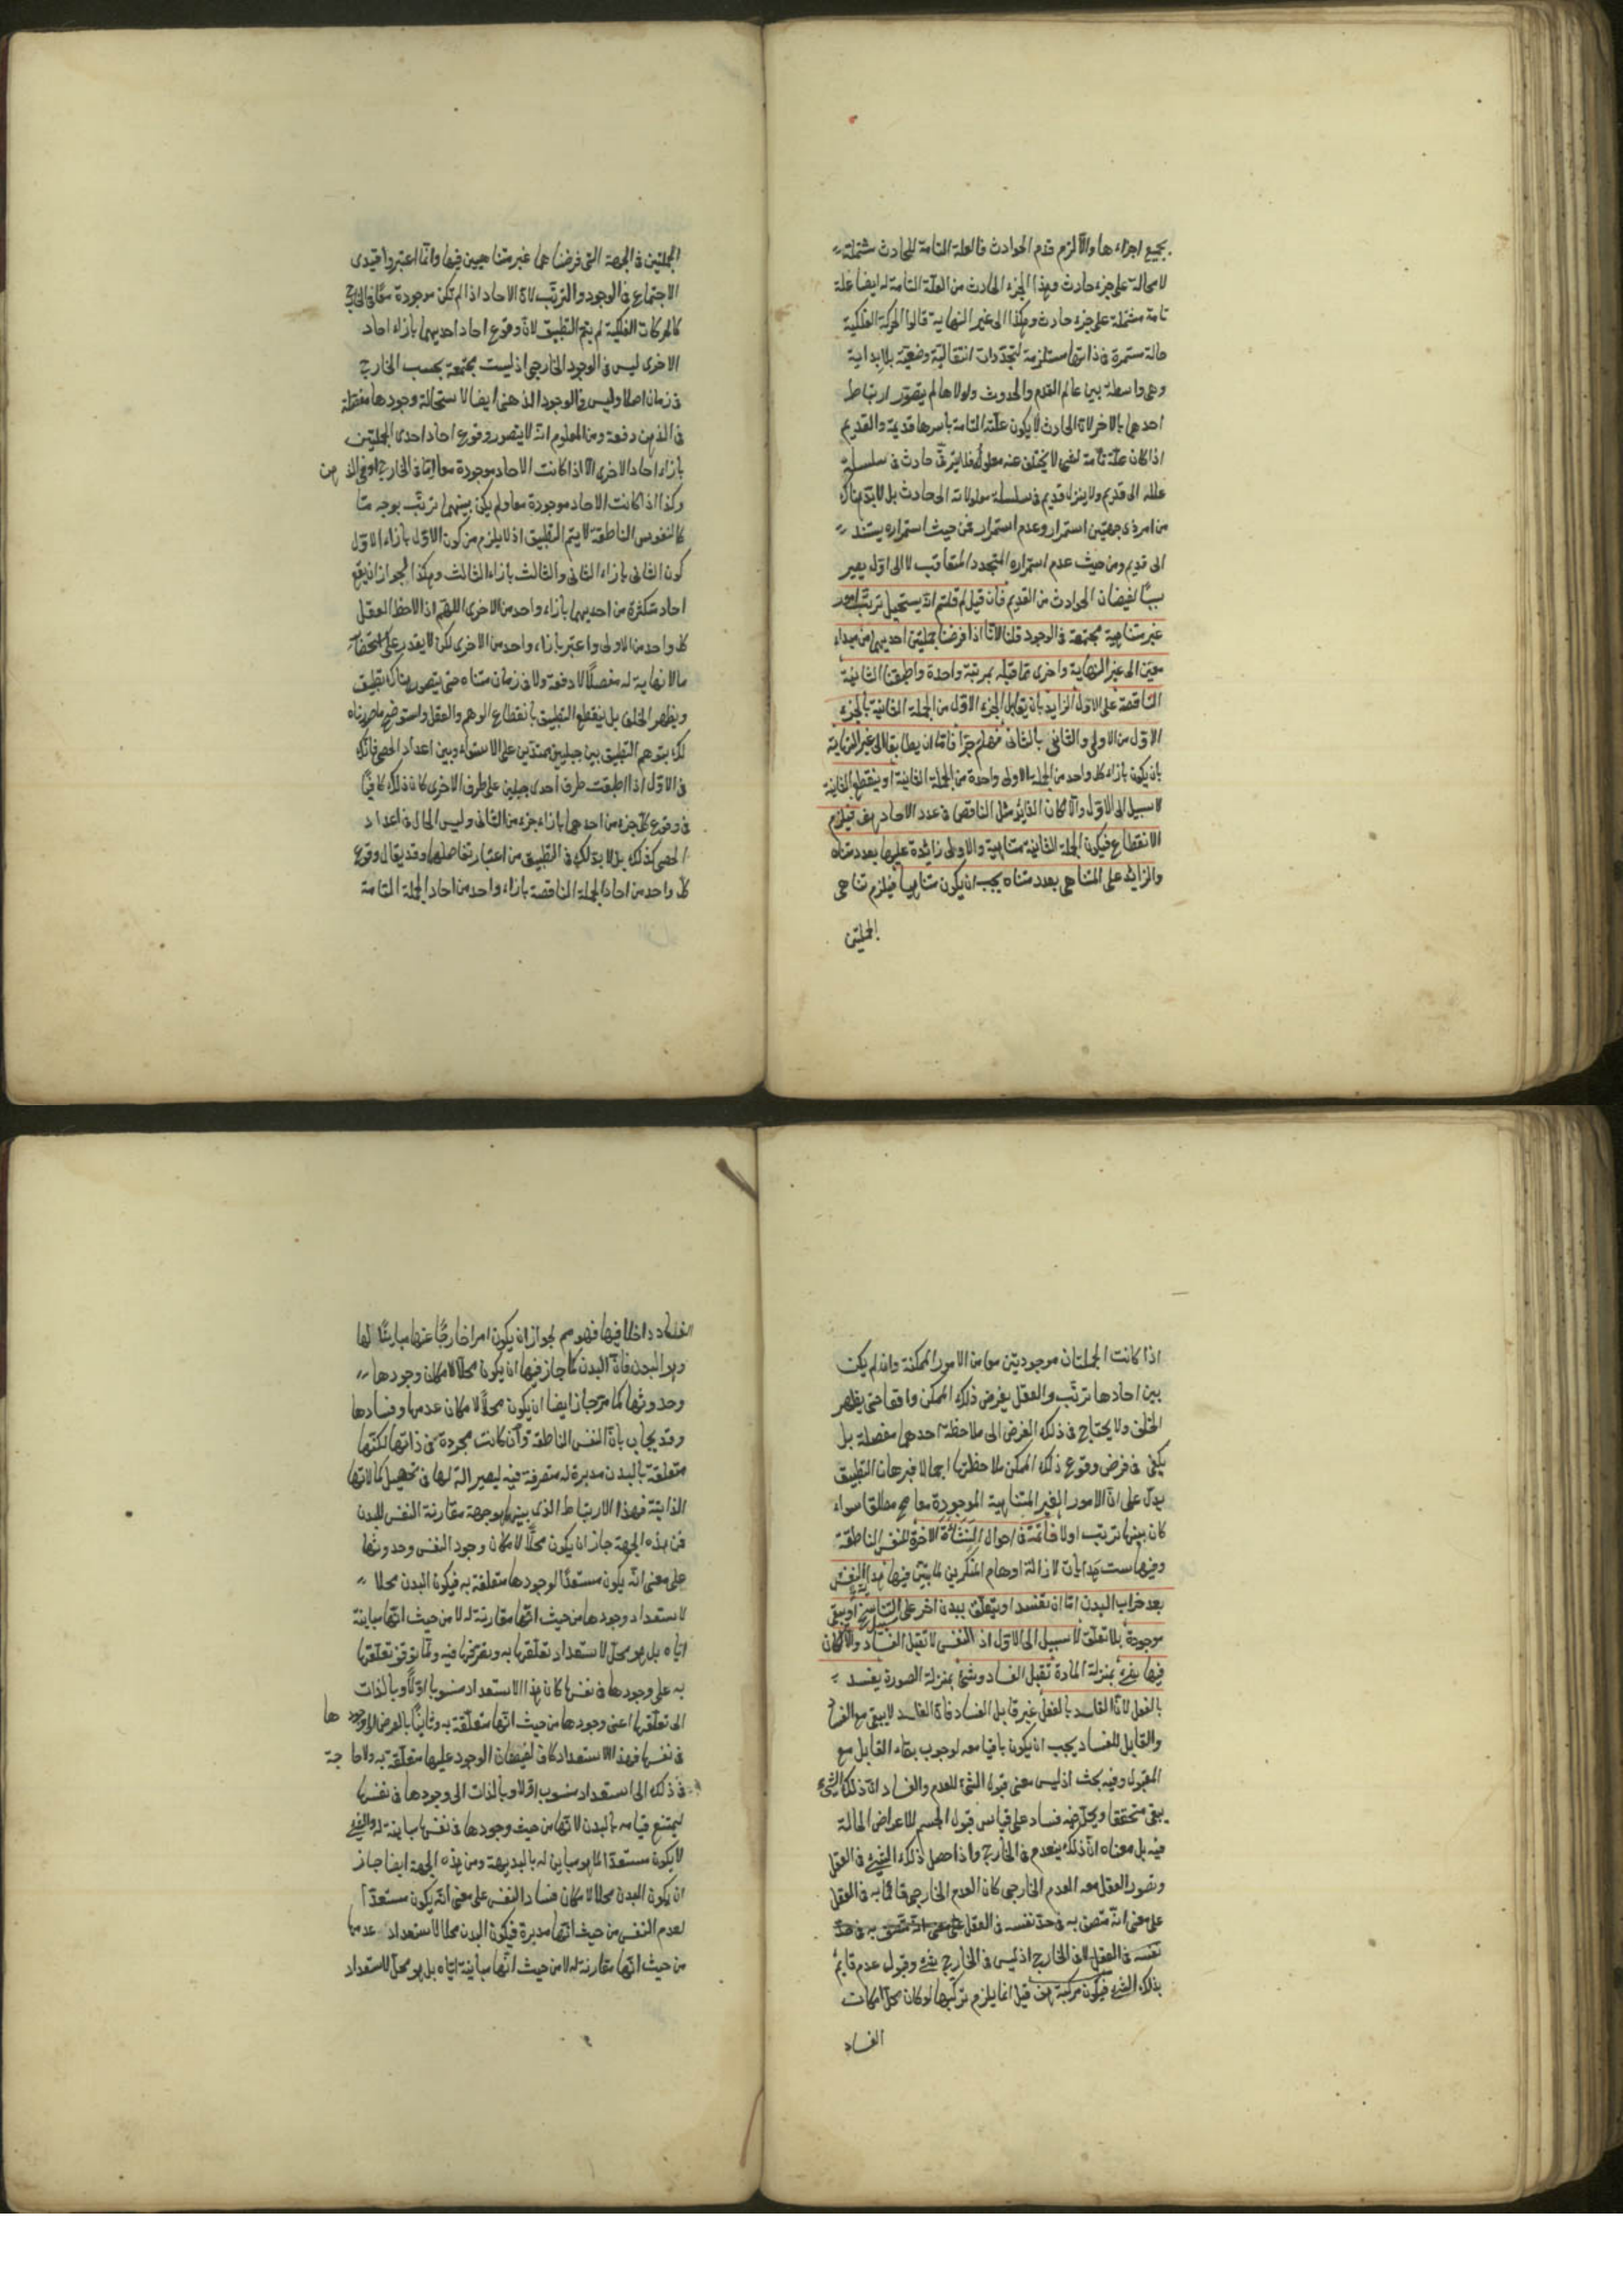 بجميع اجزاءها والا لزم قدم الحوادث فالعلة التامة للحادث مشتملة
لا محالة على جزء حادث وهذا الجزء الحادث من العلة التامة له ايضا علة
تامة مشتملة على جزء حادث وهكذا الى غير النهاية قالوا الحركة الفلكية
حالة مستمرة فى ذاتها مستلزمة لتجددات انتقالية وضعية بلا بداية
وهى واسطة بين عالم القدم والحدوث ولولاها لم يتصور ارتباط
احدهما بالاخر لان الحادث لا يكون علته التامة باسرها قديمة والقديم
اذا كان علة تامة لشئ لا يتخلف عنه معلوله فلا يترقى حادث فى سلسلة
علله الى قديم ولا ينزل قديم فى سلسلة معلولاته الى حادث بل لا بد هناك
من امر ذى جهتين استمرار وعدم استمرار فمن حيث استمراره يستند
الى قديم ومن حيث عدم استمراره المتجدد المتعاقب لا الى اول يصير
سببا لفيضان الحوادث من القديم فان قيل لم قلتم انه يستحيل ترتب امور
غير متناهية مجتمعة فى الوجود قلنا لانا اذا فرضنا جملتين احديهما من مبداء
معين الى غير النهاية واخرى مما قبله بمرتبة واحدة واطبقنا الثانية
الناقصة على الاولى الزايد بان يقابل الجزء الاول من الجملة الثانية بالجزء
الاول من الاولى والثانى بالثانى وهلم جرا فاما ان يطابقا الى غير النهاية
بان يكون بازاء كل واحد من الجملة الاولى واحدة من الجملة الثانية او ينقطع الثانية
لا سبيل الى الاول والا لكان الزايد مثل الناقص فى عدد الاحاد هف فيلزم
الانقطاع فيكون الجملة الثانية متناهية والاولى زائدة عليها بعدد متناه
والزائد على المتناهى بعدد متناه يجب ان يكون متناهيا فيلزم تناهى
الجملتين
الجملتين فى الجهة التى فرضناهما غير متناهيين فيها وانما اعتبروا قيدى
الاجتماع فى الوجود والترتب لان الاحاد اذا لم تكن موجودة معا فى الخارج
كالحركات الفلكية لم يتم التطبيق لان وقوع احاد احديهما بازاء احاد
الاخرى ليس فى الوجود الخارجى اذ ليست مجتمعة بحسب الخارج
فى زمان اصلا وليس فى الوجود الذهنى ايضا لاستحالة وجودها مفصلة
فى الذهن دفعة ومن المعلوم انه لا يتصور وقوع احاد احدى الجملتين
بازاء احاد الاخرى الا اذا كانت الاحاد موجودة معا اما فى الخارج او فى الذهن
وكذا اذا كانت الاحاد موجودة معا ولم يكن بينهما ترتب بوجه ما
كالنفوس الناطقة لا يتم التطبيق اذ لا يلزم من كون الاول بازاء الاول
كون الثانى بازاء الثانى والثالث بازاء الثالث وهكذا لجواز ان يقع
احاد متكثرة من احديهما بازاء واحد من الاخرى اللهم اذا لاحظ العقل
كل واحد من الاولى واعتبر بازاء واحد من الاخرى لكن لا يقدر على استحضار
ما لا نهاية له مفصلا لا دفعة ولا فى زمان متناه حتى يتصور هناك تطبيق
ويظهر الخلف بل ينقطع التطبيق بانقطاع الوهم والعقل واستوضح ما صورناه
لك بتوهم التطبيق بين حبلين ممتدين على الاستواء وبين اعداد الحصى فانك
فى الاول اذا طبقت طرف احدى حبلين على طرف الاخرى كان ذلك كافيا
فى وقوع كل جزء من احدهما بازاء جزء من الثانى وليس الحال فى اعداد
الحصى كذلك بل لا بد لك فى التطبيق من اعتبار تفاصلها وقد يقال وقوع
كل واحد من احاد الجملة الناقصة بازاء واحد من احاد الجملة التامة
اذا كانت الجملتان موجوديتين معا من الامور الممكنة وان لم يكن
بين احادها ترتب والعقل يفرض ذلك الممكن واقعا حتى يظهر
الخلف ولا يحتاج فى ذلك الفرض الى ملاحظة احدهما مفصلة بل
يكفى فى فرض وقوع ذلك الممكن ملاحظتها اجمالا فبرهان التطبيق
يدل على ان الامور الغير المتناهية الموجودة معا مح مطلقا سواء
كان بينها ترتيب او لا خاتمة فى احوال النشأة الاخرة للنفس الناطقة
وفيها ست هدايات لازالة اوهام المنكرين لما بين فيها هداية النفس
بعد خراب البدن اما ان تفسد او يتعلق ببدن اخر على سبيل التناسخ او يبقى
موجودة بلا تعلق لا سبيل الى الاول اذ النفس لا تقبل الفساد والا لكان
فيها شئ بمنزلة المادة تقبل الفساد وشئ بمنزلة الصورة يفسد
بالفعل لان الفاسد بالفعل غير قابل الفساد فان الفاسد لا يبقى مع الفساد
والقابل للفساد يجب ان يكون باقيا معه لوجوب بقاء القابل مع
المقبول وفيه بحث اذ ليس معنى قبول الشئ للعدم والفساد ان ذلك الشئ
يبقى متحققا ويحل فيه فساد على قياس قبول الجسم للاعراض الحالة
فيه بل معناه ان ذلك ينعدم فى الخارج واذا حصل ذلك الشئ فى العقل
وتصور العقل معه العدم الخارجى كان العدم الخارجى قائما به فى العقل
على معنى انه متصف به فى حد نفسه فى العقل على معنى انه متصف به فى حد
نفسه فى العقل لا فى الخارج اذ ليس فى الخارج شئ وقبول عدم قايم
بذلك الشئ فيكون مركبة هف قيل انما يلزم تركبها لو كان محل امكان
الفساد
الفساد داخلا فيها فهو مم لجواز ان يكون امرا خارجا عنها مباينا لها
وهو البدن فان البدن كما جاز فيها ان يكون محلا لامكان وجودها
وحدوثها كما مر جاز ايضا ان يكون محلا لامكان عدمها وفسادها
وقد يجاب بان النفس الناطقة وان كانت مجردة فى ذاتها لكنها
متعلقة بالبدن مدبرة له متصرفة فيه ليصير الة لها فى تحصيل كمالاتها
الذاتية فهذا الارتباط الذى بينهما هو جهة مقارنة النفس للبدن
فمن هذه الجهة جاز ان يكون محلا لامكان وجود النفس وحدوثها
على معنى انه يكون مستعدا لوجودها متعلقة به فيكون البدن محلا
لاستعداد وجودها من حيث انها مقارنة له لا من حيث انها مباينة
اياه بل هو محل لاستعداد تعلقها به وتصرفها فيه ولما توقف تعلقها
به على وجودها فى نفسها كان هذا الاستعداد منسوبا اولا وبالذات
الى تعلقها اعنى وجودها من حيث انها متعلقة به وثانيا بالعرض الى وجودها
فى نفسها فهذا الاستعداد كاف لفيضان الوجود عليها متعلقة به ولا حاجة
فى ذلك الى استعداد منسوب اولا وبالذات الى وجودها فى نفسها
ليمتنع قيامه بالبدن لانها من حيث وجودها فى نفسها مباينة له والشئ
لا يكون مستعدا لما هو مباين له بالبديهة ومن هذه الجهة ايضا جاز
ان يكون البدن محلا لامكان فساد النفس على معنى انه يكون مستعدا
لعدم النفس من حيث انها مدبرة فيكون البدن محلا لاستعداد عدمها
من حيث انها مقارنة له لا من حيث انها مباينة اياه بل هو محل لاستعداد